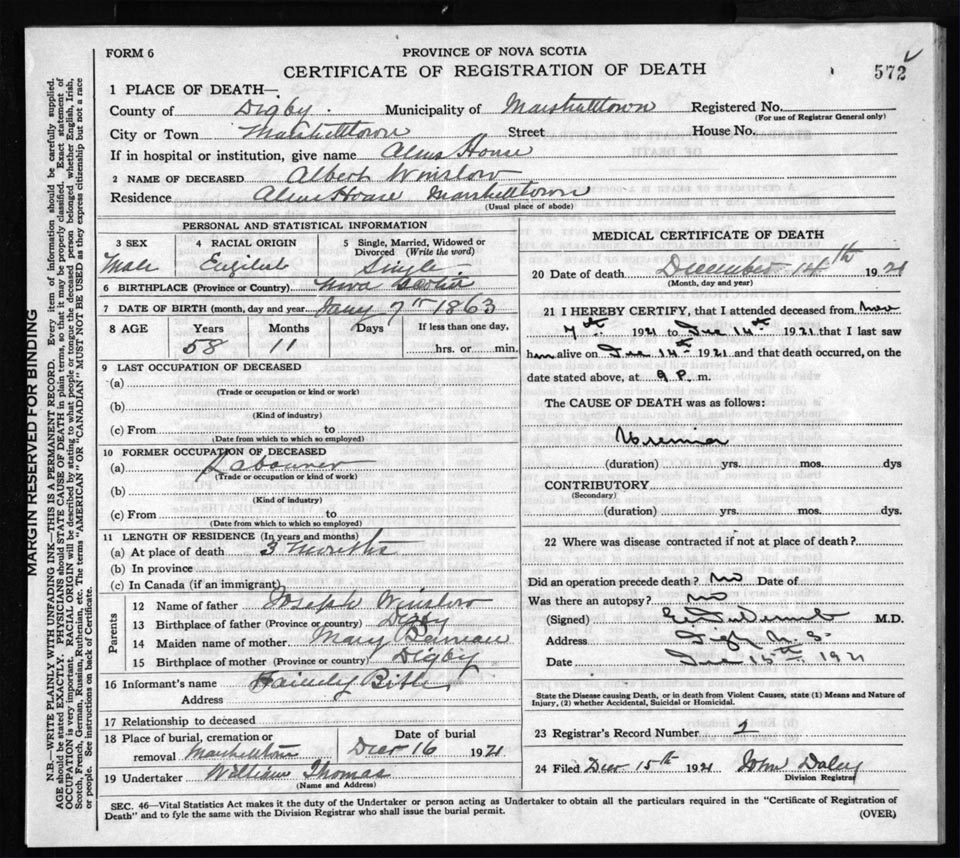 FORM 6
PROVINCE OF NOVA SCOTIA
CERTIFICATE OF REGISTRATION OF DEATH
572
1 PLACE OF DEATH—
County of Digby. Municipality of Marshalltown Registered No.
(For use of Registrar General only)
City or Town Marshalltown Street House No.
If in hospital or institution, give name Alms House
2 NAME OF DECEASED Albert Winslow
Residence Alms House Marshalltown
(Usual place of abode)
PERSONAL AND STATISTICAL INFORMATION
3 SEX 4 RACIAL ORIGIN 5 Single, Married, Widowed or Divorced (Write the word)
Male English Single
6 BIRTHPLACE (Province or Country) Nova Scotia
7 DATE OF BIRTH (month, day and year) Jany 7th 1863
8 AGE Years Months Days If less than one day,
58 11 hrs. or min.
9 LAST OCCUPATION OF DECEASED
(a)
(Trade or occupation or kind or work)
(b)
(Kind of industry)
(c) From to
(Date from which to which so employed)
10 FORMER OCCUPATION OF DECEASED
(a) Labourer
(Trade or occupation or kind of work)
(b)
(Kind of industry)
(c) From to
(Date from which to which so employed)
11 LENGTH OF RESIDENCE (In years and months)
(a) At place of death 3 months
(b) In province
(c) In Canada (if an immigrant)
Parents
12 Name of father Joseph Winslow
13 Birthplace of father (Province or country) Digby
14 Maiden name of mother Mary
15 Birthplace of mother (Province or country) Digby
16 Informant's name Family
Address
17 Relationship to deceased
18 Place of burial, cremation or removal Marshalltown Date of burial Decr 16 1921
19 Undertaker William Thomas
(Name and Address)
MEDICAL CERTIFICATE OF DEATH
20 Date of death December 14th 1921
(Month, day and year)
21 I HEREBY CERTIFY, that I attended deceased from Nov
7th 1921 to Dec 14th 1921 that I last saw
him alive on Dec 14th 1921 and that death occurred, on the
date stated above, at 9 P. m.
The CAUSE OF DEATH was as follows:
Uremia
(duration) yrs. mos. dys
CONTRIBUTORY
(Secondary)
(duration) yrs. mos. dys.
22 Where was disease contracted if not at place of death?
Did an operation precede death? No Date of
Was there an autopsy? No
(Signed) M.D.
Address Digby N.S.
Date Dec 15th 1921
State the Disease causing Death, or in death from Violent Causes, state (1) Means and Nature of
Injury, (2) whether Accidental, Suicidal or Homicidal.
23 Registrar's Record Number 2
24 Filed Decr 15th 1921 John Daley
Division Registrar
SEC. 46—Vital Statistics Act makes it the duty of the Undertaker or person acting as Undertaker to obtain all the particulars required in the "Certificate of Registration of
Death" and to fyle the same with the Division Registrar who shall issue the burial permit.
(OVER)
MARGIN RESERVED FOR BINDING
N.B.—WRITE PLAINLY WITH UNFADING INK—THIS IS A PERMANENT RECORD. Every item of information should be carefully supplied.
AGE should be stated EXACTLY. PHYSICIANS should STATE CAUSE OF DEATH in plain terms, so that it may be properly classified. Exact statement of
OCCUPATION is very important. RACIAL ORIGIN will be described by stating to what people or tongue the deceased person belonged whether English, Irish,
Scotch, French, German, Russian, Ruthenian, etc. The terms "AMERICAN" OR "CANADIAN" MUST NOT BE USED as they express citizenship but not a race
or people. See instructions on back of Certificate.